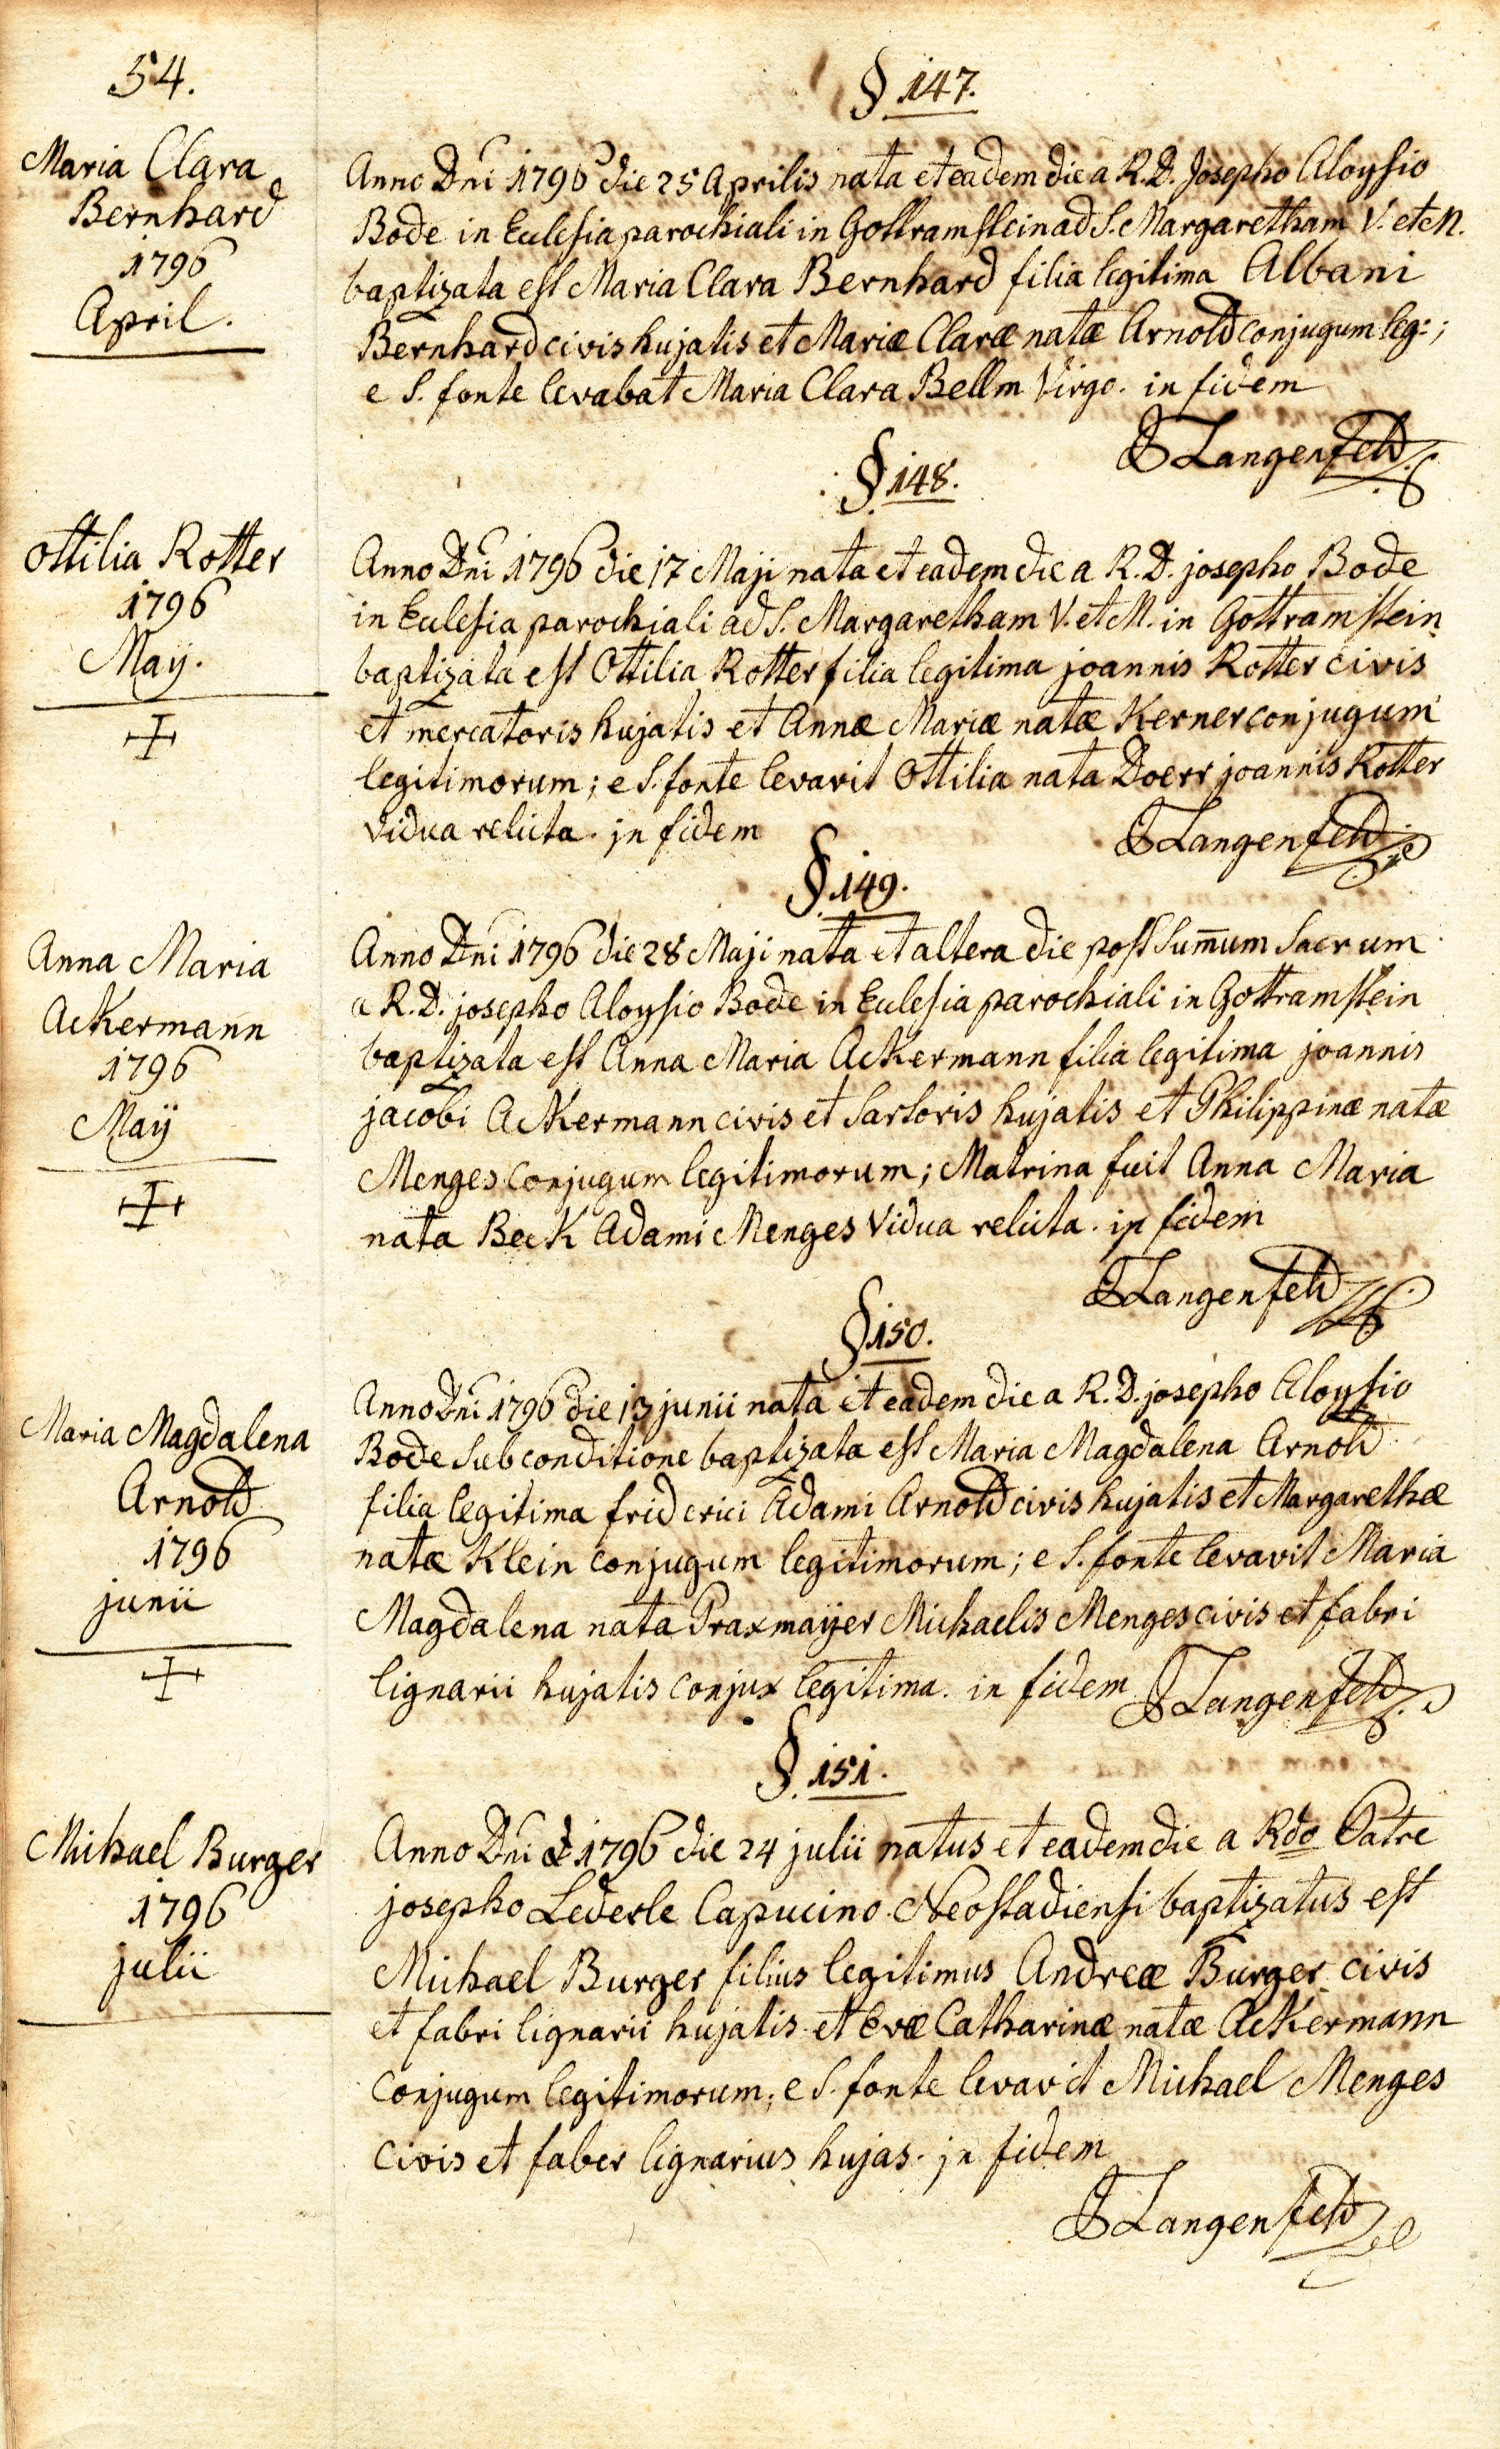 54.
§ 147.
Maria Clara
Bernhard
1796
April.
Anno Dni 1796 die 25 Aprilis nata et eadem die a R. D. Josepho Aloysio
Bode in Eclesia parochiali in Gottramstein ad S. Margaretham V. et M.
baptizata est Maria Clara Bernhard filia legitima Albani
Bernhard civis hujatis et Mariæ Claræ natæ Arnold conjugum leg:;
e S. fonte levabat Maria Clara Bellm Virgo. in fidem
Langenfeld
§ 148.
Ottilia Rotter
1796
Maÿ.
Anno Dni 1796 die 17 Maji nata et eadem die a R. D. josepho Bode
in Eclesia parochiali ad S. Margaretham V. et M. in Gottramstein
baptizata est Ottilia Rotter filia legitima joannis Rotter civis
et mercatoris hujatis et Annæ Mariæ natæ Kerner conjugum
legitimorum; e S. fonte levavit Ottilia nata Doerr joannis Rotter
vidua relicta. in fidem
Langenfeld
§. 149.
Anna Maria
Ackermann
1796
Maÿ
Anno Dni 1796 die 28 Maji nata et altera die post Sum̄um Sacrum
a R. D. josepho Aloysio Bode in Eclesia parochiali in Gottramstein
baptizata est Anna Maria Ackermann filia legitima joannis
jacobi Ackermann civis et Sartoris hujatis et Philippinæ natæ
Menges conjugum legitimorum; Matrina fuit Anna Maria
nata Beck Adami Menges Vidua relicta. in fidem
Langenfeld
§ 150.
Maria Magdalena
Arnold
1796
junii
Anno Dni 1796 die 13 junii nata et eadem die a R. D. josepho Aloysio
Bode Sub conditione baptizata est Maria Magdalena Arnold
filia legitima friderici Adami Arnold civis hujatis et Margarethæ
natæ Klein conjugum legitimorum; e S. fonte levavit Maria
Magdalena nata Praxmaÿer Michaelis Menges civis et fabri
lignarii hujatis conjux legitima. in fidem
Langenfeld
§. 151.
Michael Burger
1796
julii
Anno Dni 1796 die 24 julii natus et eadem die a Rdo Patre
josepho Lederle Capucino Neostadiensi baptizatus est
Michael Burger filius legitimus Andreæ Burger civis
et fabri lignarii hujatis et Evæ Catharinæ natæ Ackermann
conjugum legitimorum; e S. fonte levavit Michael Menges
civis et faber lignarius hujas. in fidem
Langenfeld